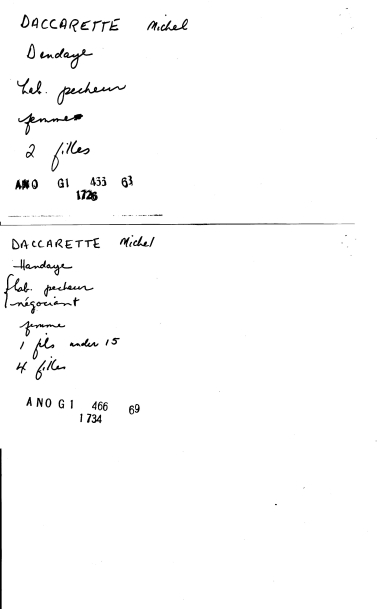 DACCARETTE Michel
Dendaye
hab. pecheur
femme
2 filles
ANO G1 433 63
1726
DACCARETTE Michel
Handaye
hab. pecheur
négociant
femme
1 fils under 15
4 filles
ANO G1 466 69
1734